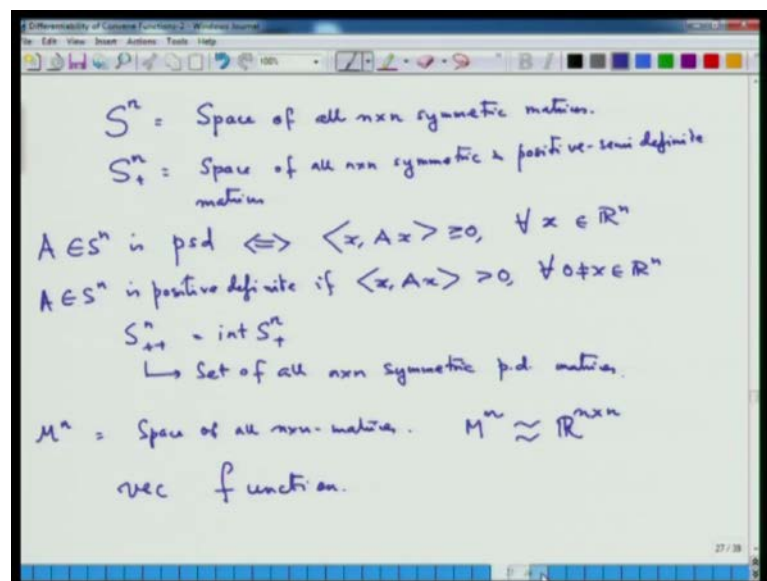 Differentiability of Convex Functions-2 - Windows Journal
File Edit View Insert Actions Tools Help
100%
B I
S^n = Space of all nxn symmetric matrices.
S^n_+ = Space of all nxn symmetric & positive-semi definite
matrices
A ∈ S^n is psd ⟺ <x, Ax> ≥ 0, ∀ x ∈ R^n
A ∈ S^n is positive definite if <x, Ax> > 0, ∀ 0 ≠ x ∈ R^n
S^n_++ = int S^n_+
↳ Set of all nxn symmetric p.d. matrices.
M^n = Space of all nxn-matrices. M^n ≈ R^{n×n}
vec function.
27 / 38